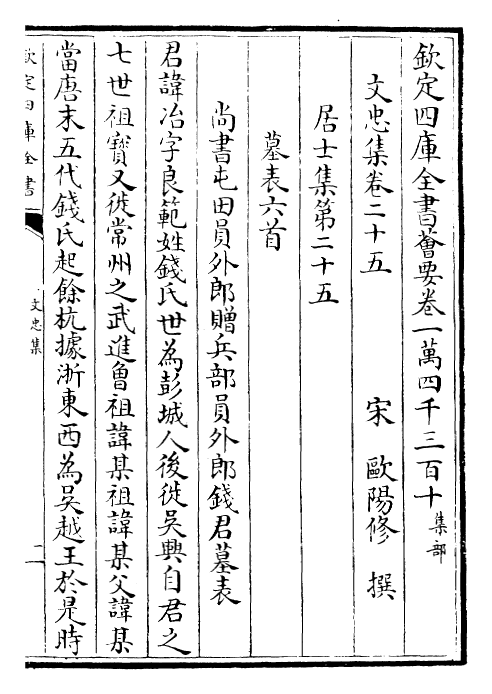 欽定四庫全書薈要卷一萬四千三百十 集部
文忠集卷二十五
宋 歐陽修 撰
居士集第二十五
墓表六首
尚書屯田員外郎贈兵部員外郎錢君墓表
君諱冶字良範姓錢氏世為彭城人後徙吳興自君之
七世祖寶又徙常州之武進曾祖諱某祖諱某父諱某
當唐末五代錢氏起餘杭據浙東西為吳越王於是時
欽定四庫全書
文忠集